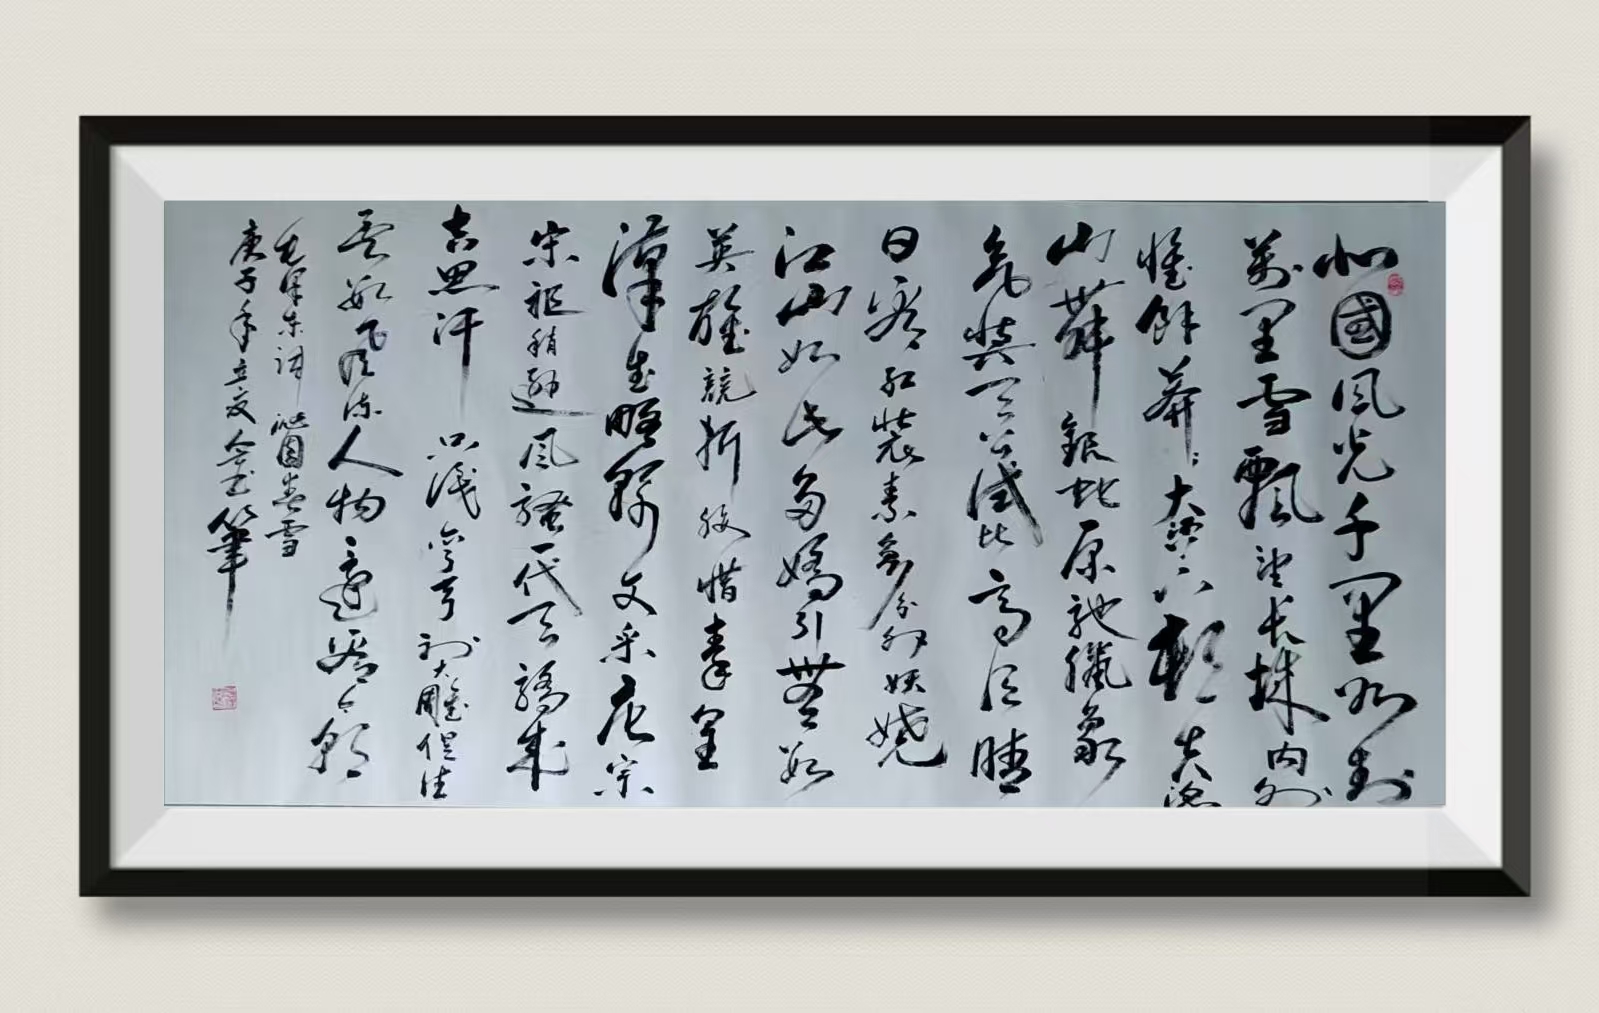 北國風光千里冰封
萬里雪飄望長城内外
惟餘莽々大河上下頓失滔
山舞銀蛇原馳臘象
氣與天公試比高須晴
日看紅裝素裹分外妖嬈
江山如此多嬌引無數
英雄競折腰惜秦皇
漢武略輸文采唐宗
宋祖稍遜風騷一代天驕成
吉思汗只識彎弓射大雕俱往
矣數風流人物還看今朝
毛澤東詞沁園春雪
庚子年立夏筆